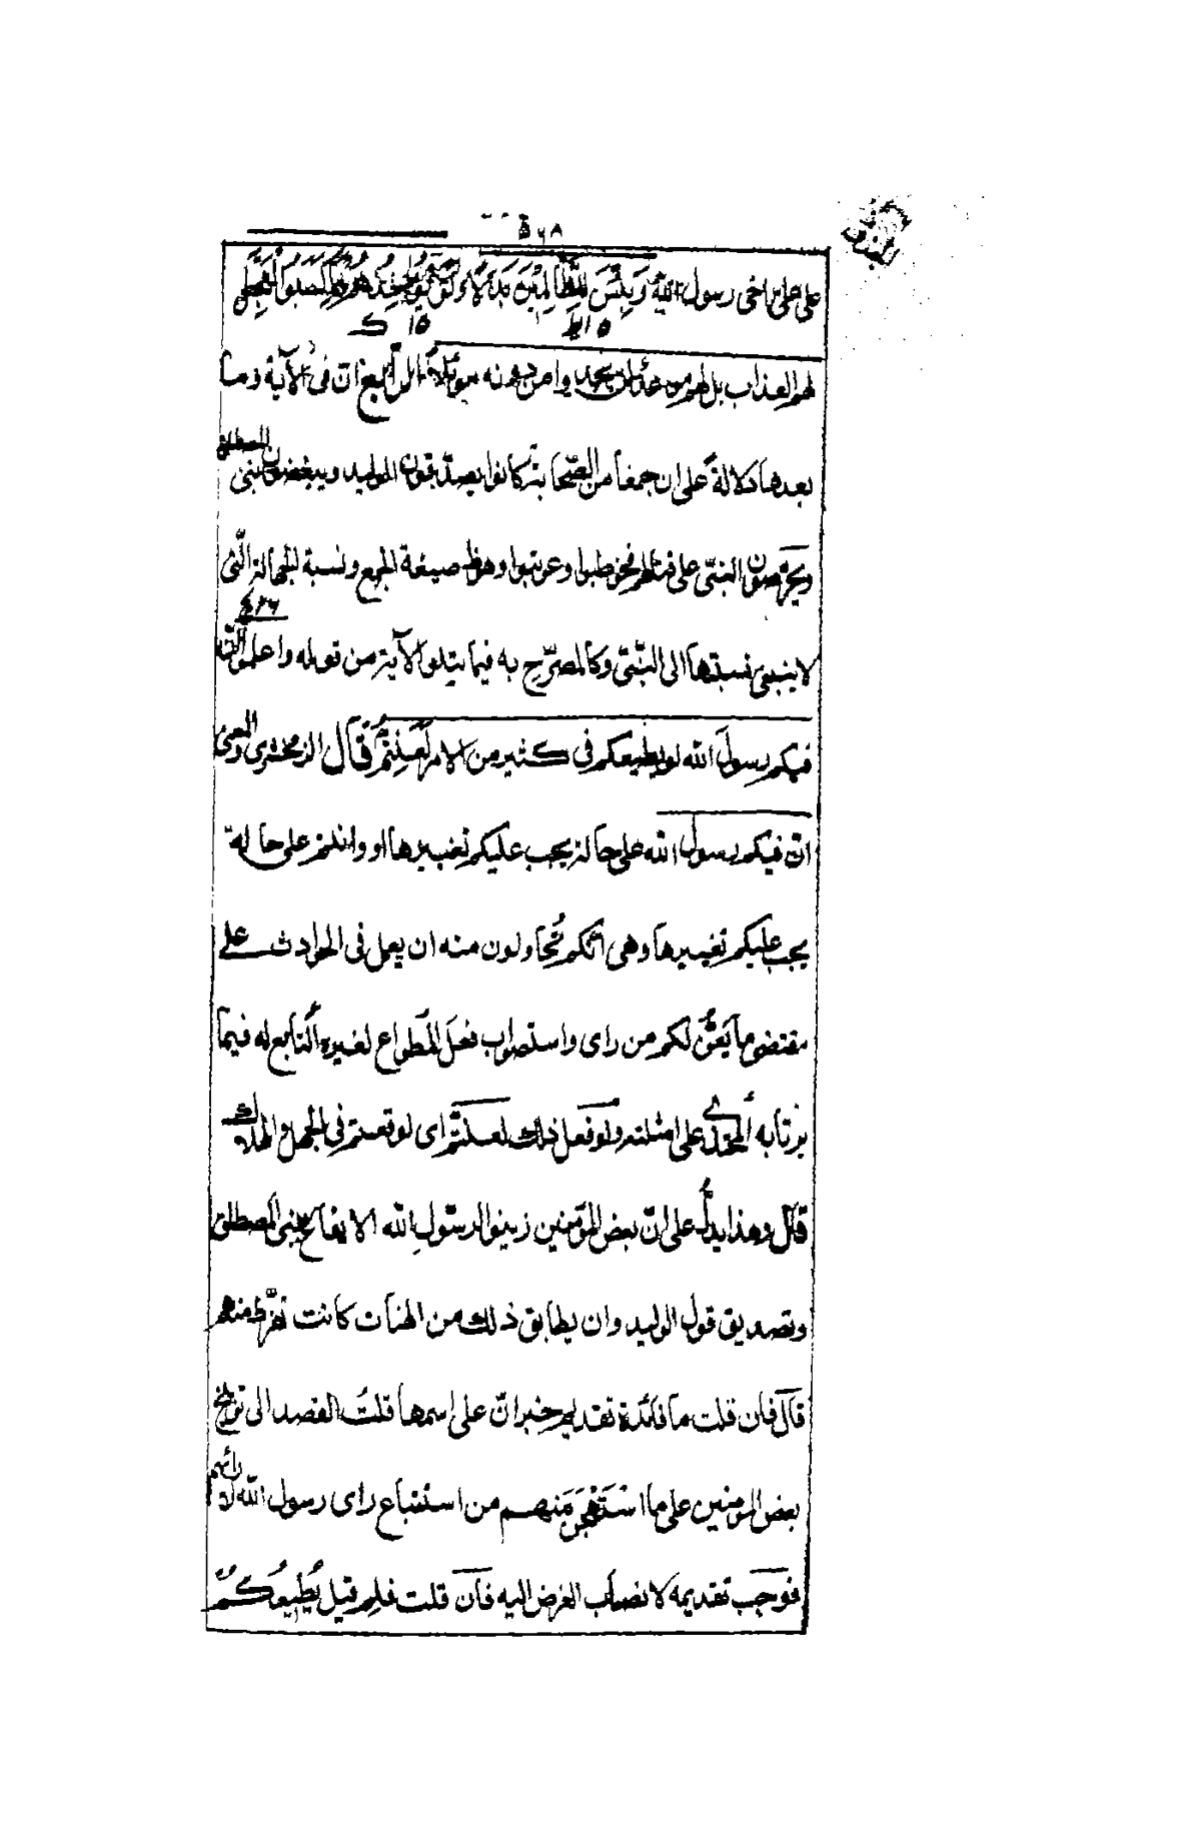 ٥٦٨
على على بن اخى رسول الله وَبِئْسَ لِلظَّالِمِيْنَ بَدَلًا وَلَوْ يُؤَاخِذُهُمْ بِمَا كَسَبُوا لَعَجَّلَ
١٥ ١٥ ك
لهم العذاب بل لهم موعد لن يجدوا من دونه موئلا الرابع ان فى الآية وما
بعدها دلالة على ان جمعا من الصّحابة كانوا يصدّقون الوليد ويبغضون بنى المصطلق
ويحرّصون النبىّ على قتالهم فخوطبوا وعوتبوا وهو صيغة الجمع ونسبة الجهالة الّتى
٤٢٦
لا ينبغى نسبتها الى النبّى وكالمصرّح به فيما يتلو الآية من قوله واعلموا انّ
فيكم رسول الله لو يطيعكم فى كثير من الامر لَعَنِتُّمْ قال الزمخشرى والمعنى
انّ فيكم رسول الله على حالة يجب عليكم تغييرها او وانتم على حالة
يجب عليكم تغييرها وهى انّكم تُحاولون منه ان يعمل فى الحوادث على
مقتضى ما يَعِنُّ لكم من راى واستصواب فعلَ المطواع لغيره التّابع له فيما
يرتايه المحتذى على امثلته ولو فعل ذلك لعنتّم اى لوقعتم فى الجهل والهلاك
قال وهذا يدلُّ على انّ بعض المؤمنين زينوا لرسُولِ الله الايقاع ببنى المصطلق
وتصديق قول الوليد وان يطابق ذلك من الهنات كانت تفرّط منهم
قال فان قلت ما فائدة تقديم خبر انّ على اسمها قلتُ القصد الى توبيخ
بعض المؤمنين على ما اسْتَهْجَنَ منهم من استتباع راى رسول الله لآرائهم
فوجب تقديمه لانصباب الغرض اليه فان قلت فلم قيل يُطِيعُكُمْ